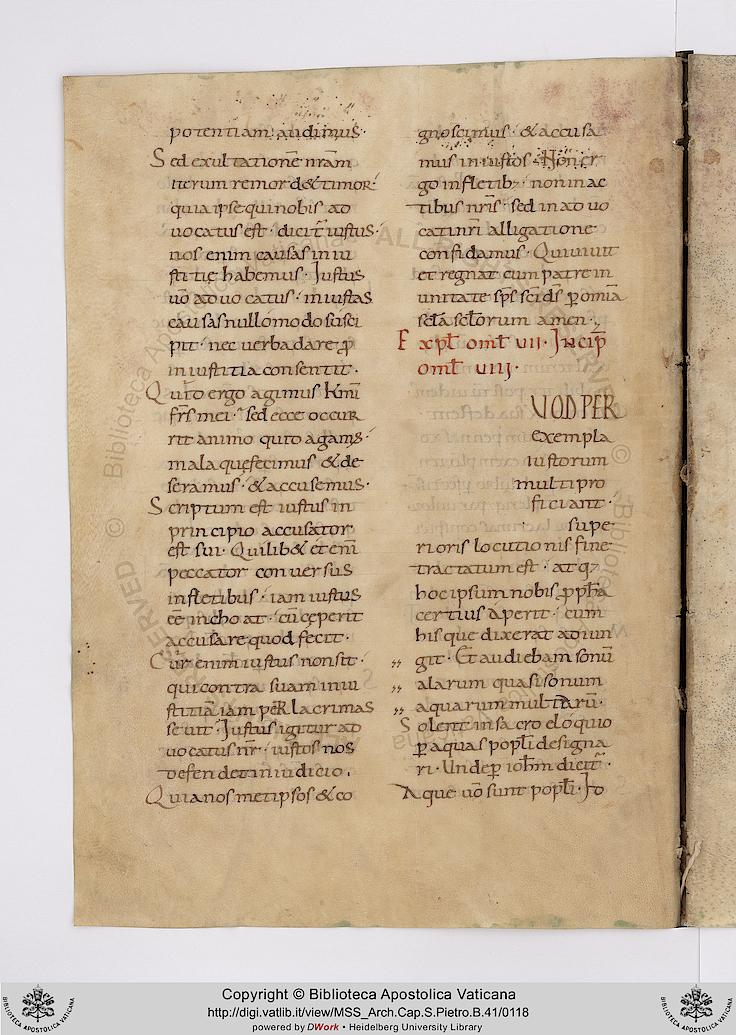 potentiam audimus·
Sed exultationē nr̄am
iterum remordet timor·
quia ipse qui nobis ad
uocatus est· dicit̄ iustus·
nos enim causas iniu
stitię habemus· Iustus
uō aduocatus· iniustas
causas nullomodo susci
pit· nec uerba dare ꝓ
iniustitia consentit·
Quito ergo agimus kmī
frs̄ mei· sed ecce occur
rit animo quto agams·
mala que fecimus & de
seramus· & accusemus·
Scriptum est iustus in
principio accusator
est sui· Quilib& etenī
peccator conuersus
infletibus· iam iustus
eē inchoat· cū ceperit
accusare quod fecit·
Cur enim iustus non sit·
qui contra suam iniu
stitiā iam per lacrimas
seuit· Iustus igitur ad
uocatus nr̄· iustos nos
defendet in iudicio·
Quia nosmetipsos & co
gnoscimus· & accusa
mus iniustos· Non er
go infletib; non in ac
tibus nr̄is· sed in aduo
cati nr̄i alligatione
confidamus· Qui uiuit
et regnat cum patre in
unitate sp̄s sc̄i ds̄ p̄ omīa
sc̄la sc̄lorum amen·
Expl̄ oml̄ VII· Incip̄
oml̄ VIII·
UOD PER
exempla
iustorum
multi pro
ficiant·
supe
rioris locutionis fine
tractatum est· atq;
hoc ipsum nobis ꝓph̄a
certius aperit· cum
his que dixerat adiun
git· Et audiebam sonū
alarum quasi sonum
aquarum multarū·
Solent in sacro eloquio
p̄ aquas popl̄i designa
ri· Unde p̄ ioh̄m dicit̄·
Aque uō sunt popl̄i· Io
Copyright © Biblioteca Apostolica Vaticana
http://digi.vatlib.it/view/MSS_Arch.Cap.S.Pietro.B.41/0118
powered by DWork • Heidelberg University Library